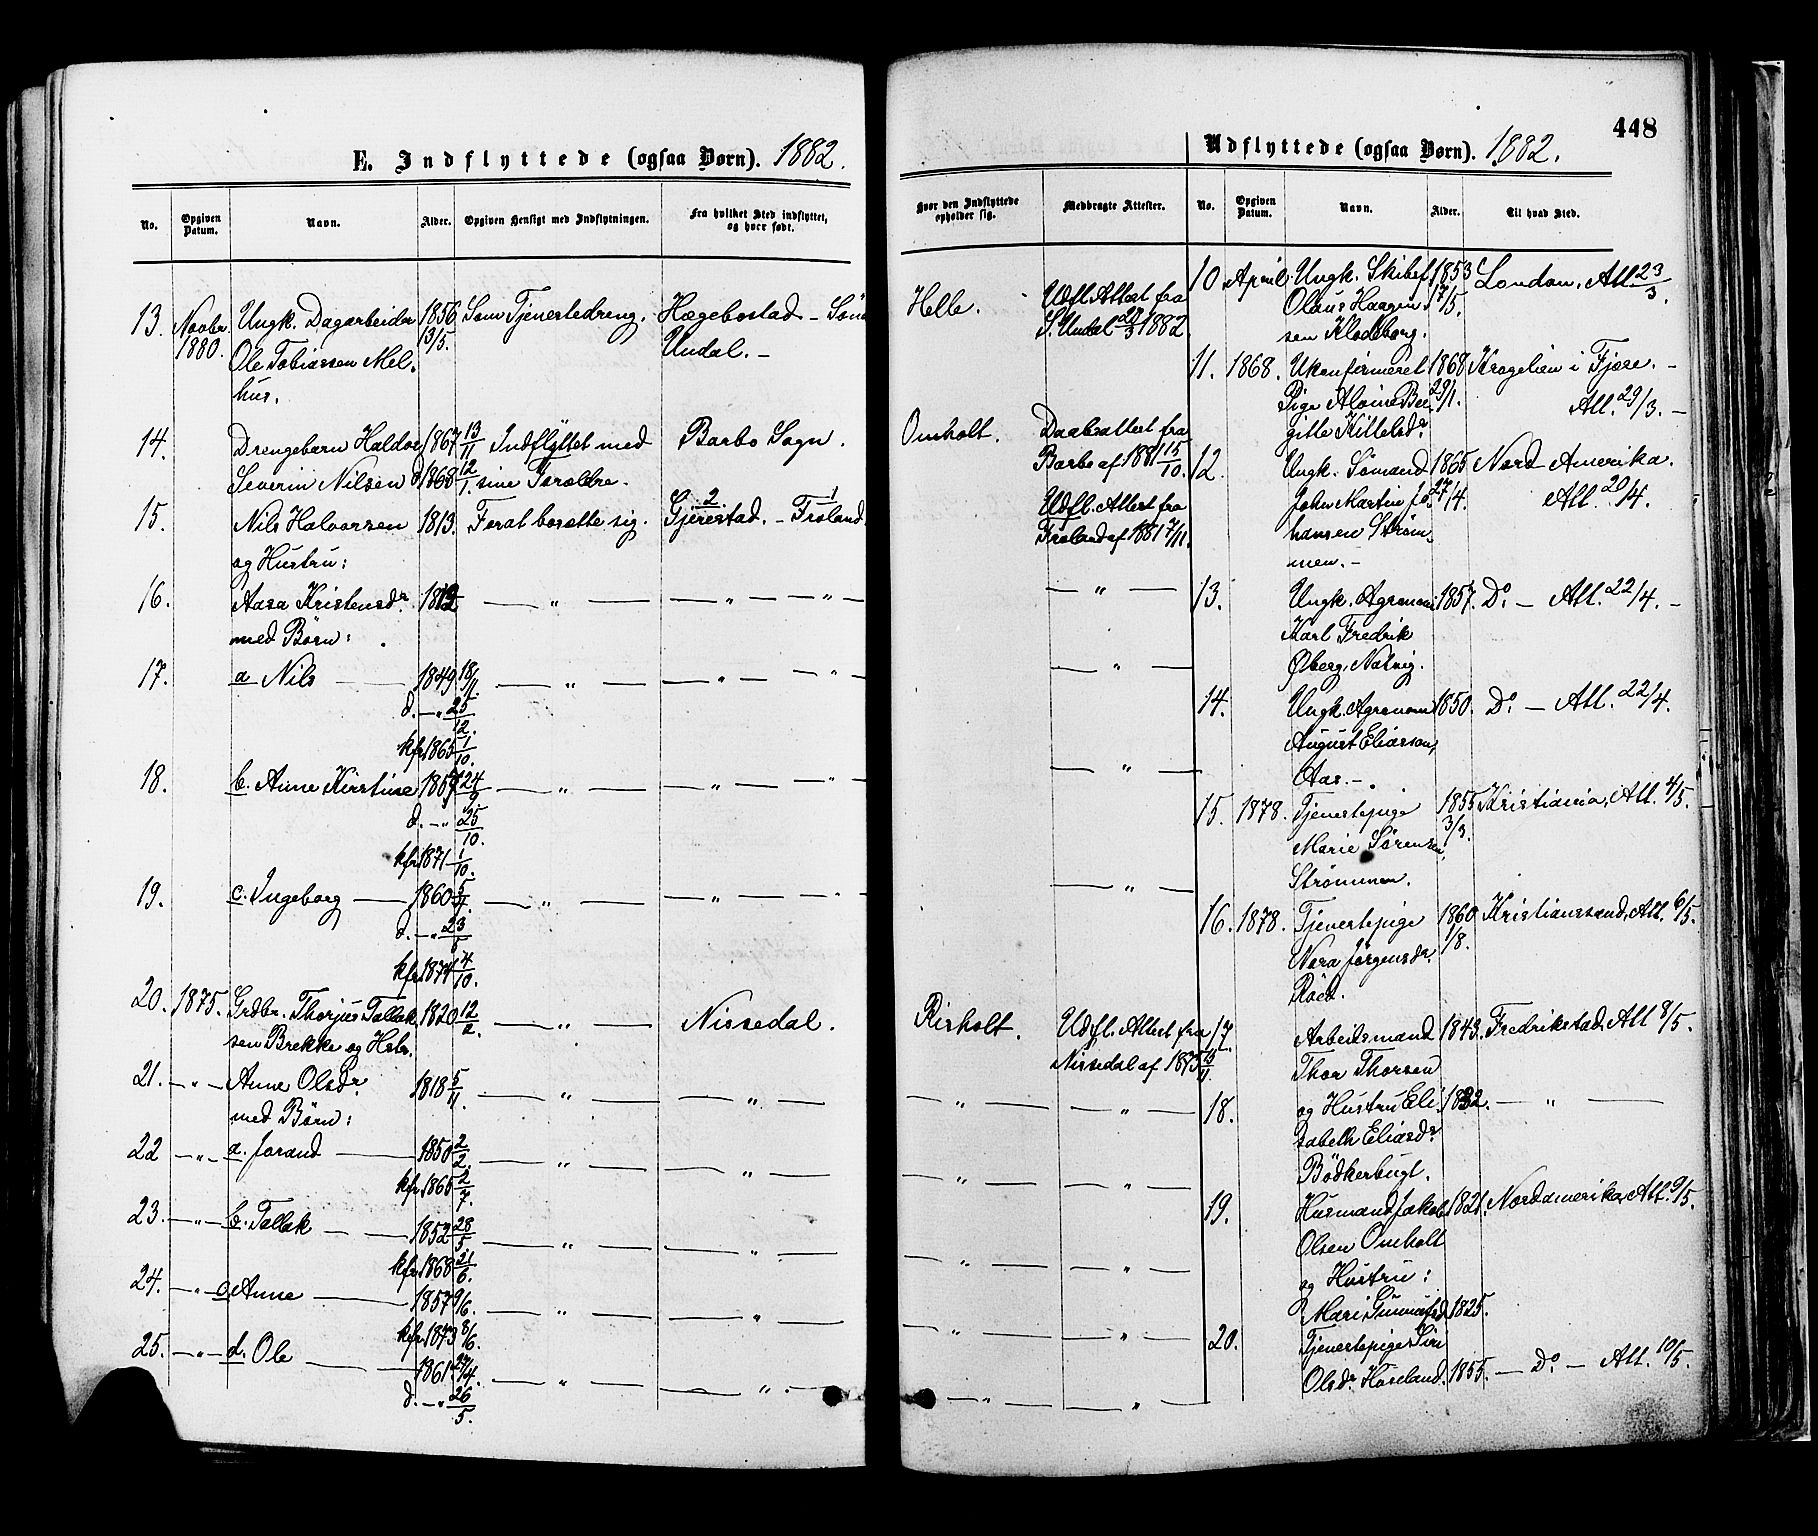 E. Indflyttede (ogsaa Børn). 1882.
No. Opgiven Datum. Navn. Alder. Opgiven Hensigt med Indflytningen. Fra hvilket Sted indflyttet, og hvor født.
13. Novbr 1880. Ungk. Dagarbeider 1856 Som Tjenestedreng. Hægebostad - Søn
Ole Tobiassen Mel- 13/5. Undal. -
hus.
14. Drengebarn Haldor 1867 13/11 Indflyttet med Barbo Sogn.
Severin Nilsen d. 1868 12/1. sine Forældre.
15. Nils Halvorsen 1813. For at bosætte sig. Gjerestad. 2 - Froland 1
og Hustru:
16. Aasa Kristensdr. 1812 — " — — " — " —
med Børn:
17. a Nils — 1849 18/11. — " — — " — " —
d. - " 25/12.
kfr. 1865 1/10.
18. b. Anne Kirstine 1857 24/9 — " — — " — " —
d. - " 25/10.
kfr. 1871 1/10.
19. c. Ingeborg — 1860 — " — — " — " —
d. - " 23
kfr. 1874 4/10.
20. 1875. Grdbr. Thorjus Tallak- 1820 12/2. — " — Nissedal.
sen Brekke og Hstr.
21. - " - Anne Olsdr. 1818 5/11. — " — — " —
med Børn:
22 - " - a. Jorand — 1850 2/2. — " — — " —
kfr. 1865 2/7.
23. - " - b. Tallak — 1852 28/5 — " — — " —
kfr. 1868 21/6.
24. - " - c. Anne — 1857 9/6. — " — — " —
kfr. 1873 8/6.
25. - " - d. Ole — 1861. 27/4. — " — — " —
d. - " 26/5.
448
Udflyttede (ogsaa Børn). 1882.
Hvor den Indflyttede opholder sig. Medbragte Attester. No. Opgiven Datum. Navn. Alder. Til hvad Sted.
Helle. Udfl. Attest fra
S. Undal 27/3 1882.
Omholt. Daabsattest fra
Barbo af 1881 15/10.
Udfl. Attest fra
Froland af 1881 7/11.
— " —
— " —
— " —
— " —
Risholt. Udfl. Attest fra
Nissedal af 1875 13/11.
— " — — " —
— " — — " —
— " — — " —
— " — — " —
— " — — " —
10. April. Ungk. Skibsf. 1853 London, Att. 23/3.
Olaus Haagen- 17/5.
sen Klodeborg.
11. 1868. Ukonfirmeret 1868 Krogelien i Fjære. -
Pige Alvine Ber- 29/1. Att. 29/3. -
gitte Kittelsdr.
12. Ungk. Sømand 1865 Nord Amerika.
John Martin Jo- 27/4. Att. 20/4.
hansen Strøm-
men. -
13. Ungk. Agronom 1857. Do. - Att. 22/4. -
Karl Fredrik
Øberg, Natvig.
14. Ungk. Agronom 1850. Do. - Att. 22/4.
August Eliassen,
Aas. -
15. 1878. Tjenestepige 1855 Kristiania, Att. 4/5.
Marie Sørensen, 3/3.
Strømmen.
16. 1878. Tjenestepige 1860 Kristianssand, Att. 6/5.
Nora Jørgensdr. 1/8.
Roed.
17. Arbeidsmand 1843. Fredrikstad, Att 8/5.
Thor Thorsen
18. og Hustru Eli- 1832. — " —
sabeth Eliasdr.
Bødkerbugt.
19. Husmand Jakob 1821. Nordamerika, Att. 9/5.
Olsen Omholt
og Hustru:
Mari Gunnufsd. 1825.
20. Tjenestepige Siri
Olsdr. Høseland. 1855. - Do. - Att. 10/5.